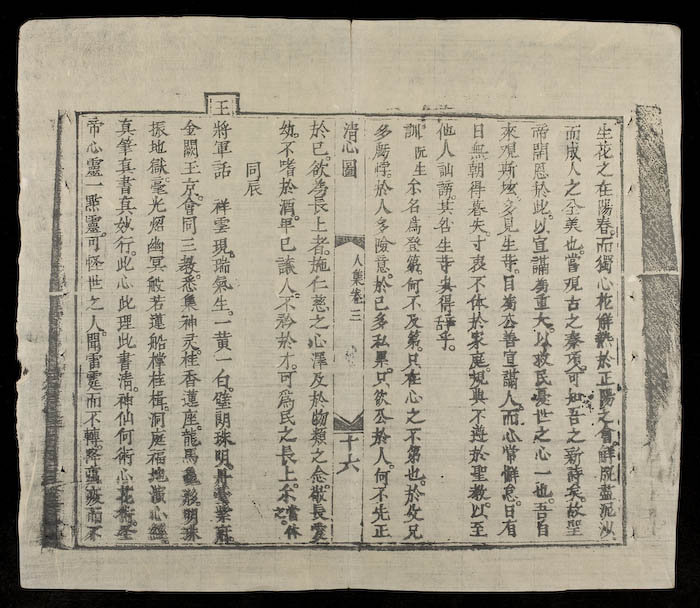 生花之在陽春而獨心花鮮㸐於正陽之會鮮既盡泥沙
而成人之全美也當觀古之秦項可知吾之新詩矣故聖
帝開恩於此以宣講爲重大以救民憂世之心一也吾自
來觀斯壇多見生等日爲公善宣講人而心常懈怠日有
日無朝得暮失寸衷不体於家庭規典不遵於聖教以至
他人訕謗其咎生等眞得辞乎
訓阮生尒名爲登第何不及第只在心之不第也於父兄
多虧悖於人多險意於已多私累只欲公於人何不先正
清心圖
人集卷三
十六
於已欲爲長上者施仁慈之心澤及於物類之念敬長愛
幼不嗜於酒卑已讓人不矜於才可爲民之長上不當休之
同辰
王將軍話 祥雲現瑞氣生一黄一白璧朗珠明丹臺紫府
金闕玉京會同三教悉集神灵桂香蓮座龍馬龜形明珠
振地獄毫光炤幽冥般若蓮船檸桂楫洞庭福地演心經
真筆真書真妙行此心此理此書清神仙何術心花術聖
帝心靈一點靈可怪世之人聞雷霆而不轉